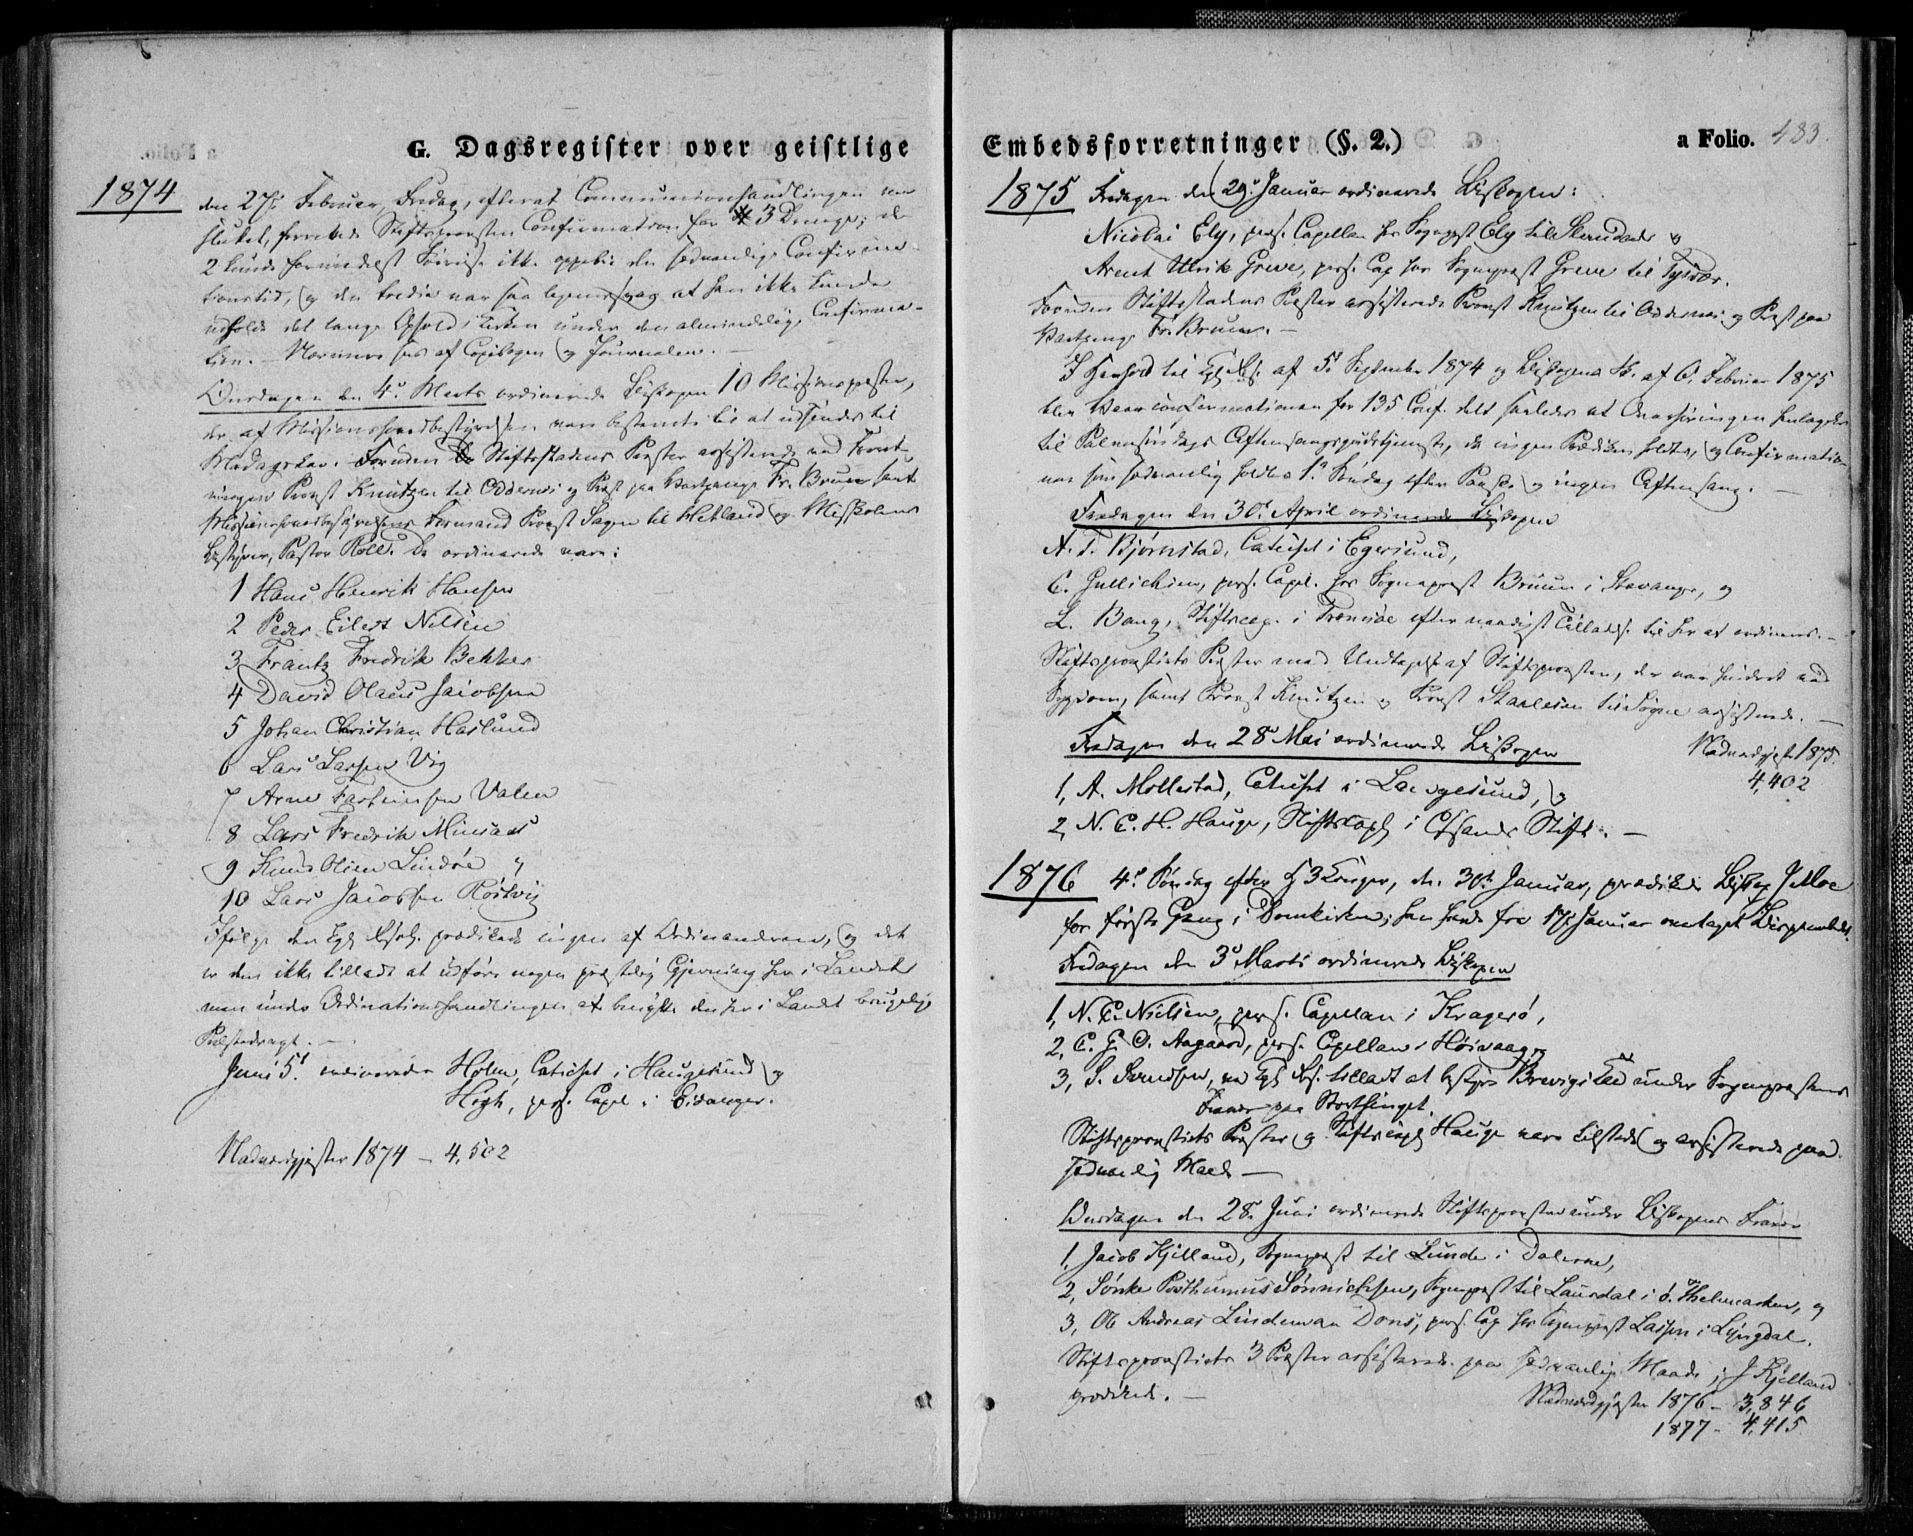 G. Dagsregister over geistlige
1874
den 27de Februar, Fredag, efterat Communionhandlingen var
sluttet, forrettede Stiftsprovsten Confirmation for 3 Drenge; de
2 kunde formedelst Søreise ikke oppebie den sædvanlige Confirma-
tionstid, og den tredie var saa svag at han ikke kunde
udholde det lange Ophold i Kirken under den almindelige Confirma-
tion. – Nærmere sees af Copibogen og Journalen. –
Onsdagen den 4de Marts ordinerede Biskopen 10 Missionsprester,
der af Missionshovedbestyrelsen vare bestemte til at udsendes til
Madagaskar. Foruden Stiftsstadens Prester assisterede ved Forret-
ningen Provst Knutzen til Oddernes og Prest paa Hartvange Fr. Bruun samt
Missionshovedbestyrelsens Formand Provst Sagen til Hetland og Misskolens
Bestyrer, Pastor Roll. De ordinerede vare:
1 Hans Henrik Hansen
2 Peder Eilert Nilsen
3 Frantz Fredrik Bekker
4 David Olaus Jacobsen
5 Johan Christian Haslund
6 Lars Larsen Vig
7 Arne Valen
8 Lars Fredrik Minsaas
9 Knud Olsen Lindøe
10 Lars Jacobsen Røstvig
Ifølge den Kgl. Resol. prædikede ingen af Ordinanderne, og det
er dem ikke tilladt at udføre nogen prestelig Gjerning her i Landet
men under Ordinationshandlingen at benytte den her i Landet brugelige
Prestedragt. –
Juni 5te ordineredes Holm, Catechet i Haugesund og
Hogh, pers. Capel. i Eidanger.
Nadverdgjester 1874 – 4,502
Embedsforretninger (§. 2.)
a Folio. 483.
1875 Fredagen den 29de Januar ordinerede Biskopen:
Nicolai Ely, pers. Capellan for Sogneprest Ely til og
Arent Ulrik Greve, pers. Cap. for Sogneprest Greve til Tysvær.
Foruden Stiftsstadens Prester assisterede Provst Knutzen til Oddernes og Prest paa
Hartvange Fr. Bruun. –
I Henhold til Kgl. Res. af 5te September 1874 og Biskopens Sk. af 6. Februar 1875
blev Vaarconfirmationen for 135 Conf. delt saaledes at Overhøringen henlagdes
til Palmesøndags Aftensangsgudstjeneste, da ingen Prædiken holdtes, og Confirmatio-
nen som sædvanlig holdtes 1ste Søndag efter Paaske og ingen Aftensang. –
Fredagen den 30te April ordinerede Biskopen
A. T. Bjørnstad, Catechet i Egersund,
C. Gullichsen, pers. Capel. for Sogneprest Bruun i Stavanger, og
L. Bang, Stiftscap. i Tromsøe efter naadigst Tilladelse til her at ordineres. –
Stiftsprovstiets Prester med Undtagelse af Stiftsprovsten, der var hindret ved
Sygdom, samt Provst Knutzen og Provst Staalesen til Søgne assisterede. –
Fredagen den 28de Mai ordinerede Biskopen
Nadverdgjester 1875.
4,402
1, A. Mollestad, Catechet i Langesund, og
2, N. C. H. Hauge, Stiftscapl. i Chsands Stift. –
1876 4de Søndag efter H 3 Konger, den 30te Januar, prædikede Biskop J. Moe
for første Gang i Domkirken; han havde fra 17de Januar overtaget Bispeembedet.
Fredagen den 3de Marts ordinerede Biskopen
1, N. C. Nielsen, pers. Capellan i Kragerø,
2, C. G. O. Aagaard, pers. Capellan i Høivaag, og
3, S. Svendsen, ved Kgl. Res. tilladt at bestyre Brevigs Kald under Sogneprestens
Fravær paa Storthinget.
Stiftsprovstiets Prester og Stiftscapl. Hauge vare tilstede og assisterede paa
sædvanlig Maade –
Onsdagen den 28de Juni ordinerede Stiftsprovsten under Biskopens Fravær
1, Jacob Kjelland, Sogneprest til Lunde i Dalerne,
2, Sønke Posthumus Sønnichsen, Sogneprest til Laurdal i ø. Thelemarken, og
3, Ole Andreas Lindeman Dons, pers. Cap. for Sogneprest Lassen i Lyngdal.
Stiftsprovstiets 3 Prester assisterede paa sædvanlig Maade; J Kjelland
prædikede. –
Nadverdgjester 1876 – 3,846
1877 – 4,415